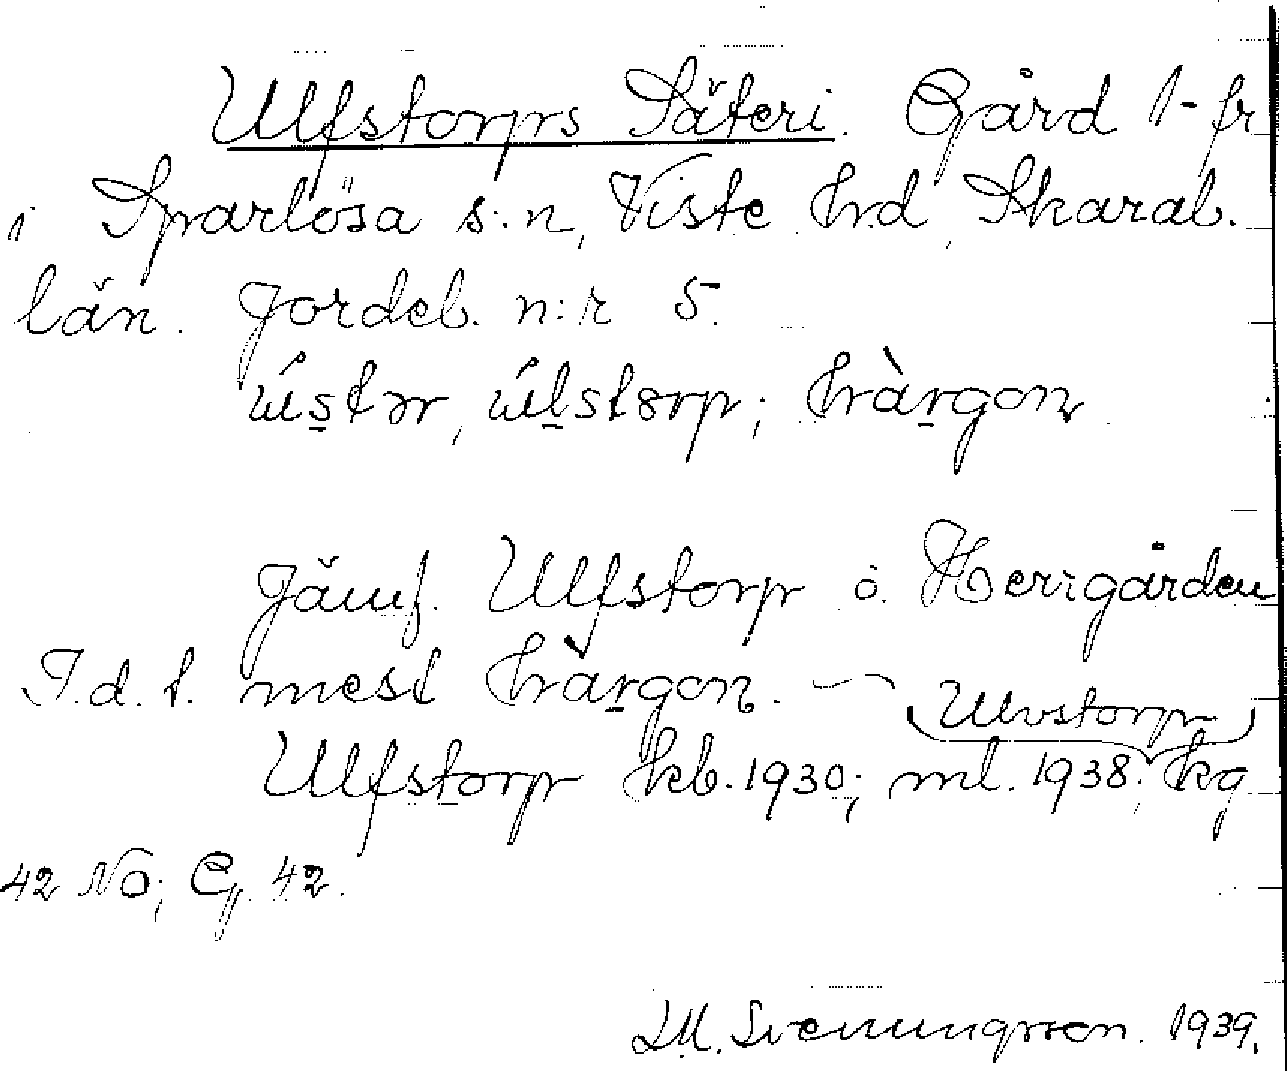 Ulfstorps Säteri. Gård 1 fr
i Sparlösa s:n, Viste hrd, Skarab.
län. Jordeb. n:r 5.
Jämf. Ulfstorp o. Herrgården
T.d.t. mest
Ulvstorp
Ulfstorp kb. 1930; ml. 1938; kg
42 No; G. 42.
M. Svenungsson. 1939.